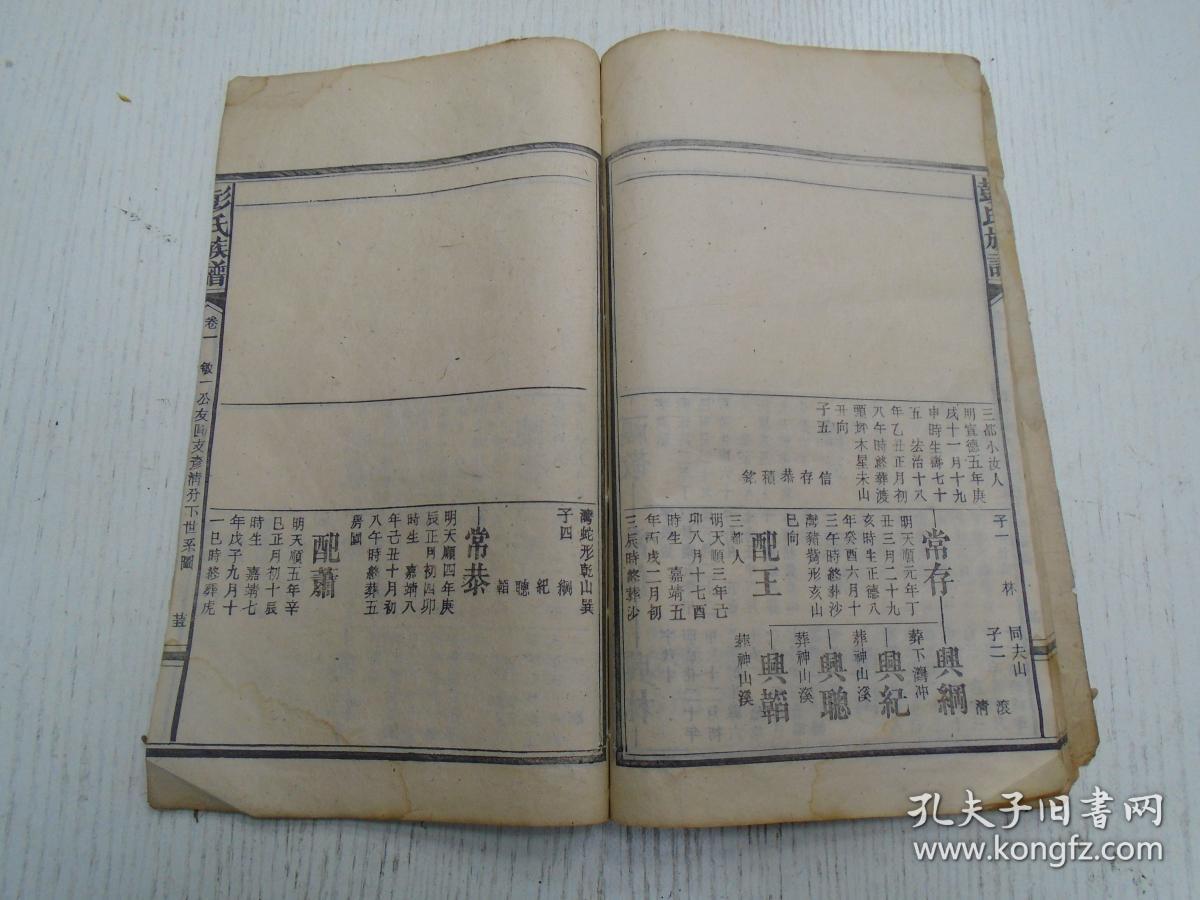 彭氏族譜
三都小汝人
明宣德五年庚
戌十一月十九
申時生壽七十
五 法治十八
年乙丑正月初
八午時終葬渡
頭坪木星未山
丑向
子五
信存恭積銘
子一
林
常存
明天順元年丁
丑三月二十九
亥時生正德八
年癸酉六月十
三午時終葬沙
灣豬觜形亥山
巳向
配王
三都人
明天順三年己
卯八月十七酉
時生 嘉靖五
年丙戌二月初
三辰時終葬沙
同夫山
子二
滾
清
興綱
葬下灣冲
興紀
葬神山溪
興聰
葬神山溪
興韜
葬神山溪
灣蛇形乾山巽
子四
綱
紀
聰
韜
常恭
明天順四年庚
辰正月初四卯
時生 嘉靖八
年己丑十月初
八午時終葬五
房園
配蕭
明天順五年辛
巳正月初十辰
時生 嘉靖七
年戊子九月十
一巳時終葬虎
彭氏族譜
卷一
敏一公友
支彥清分下世系圖
孔夫子旧书网
www.kongfz.com